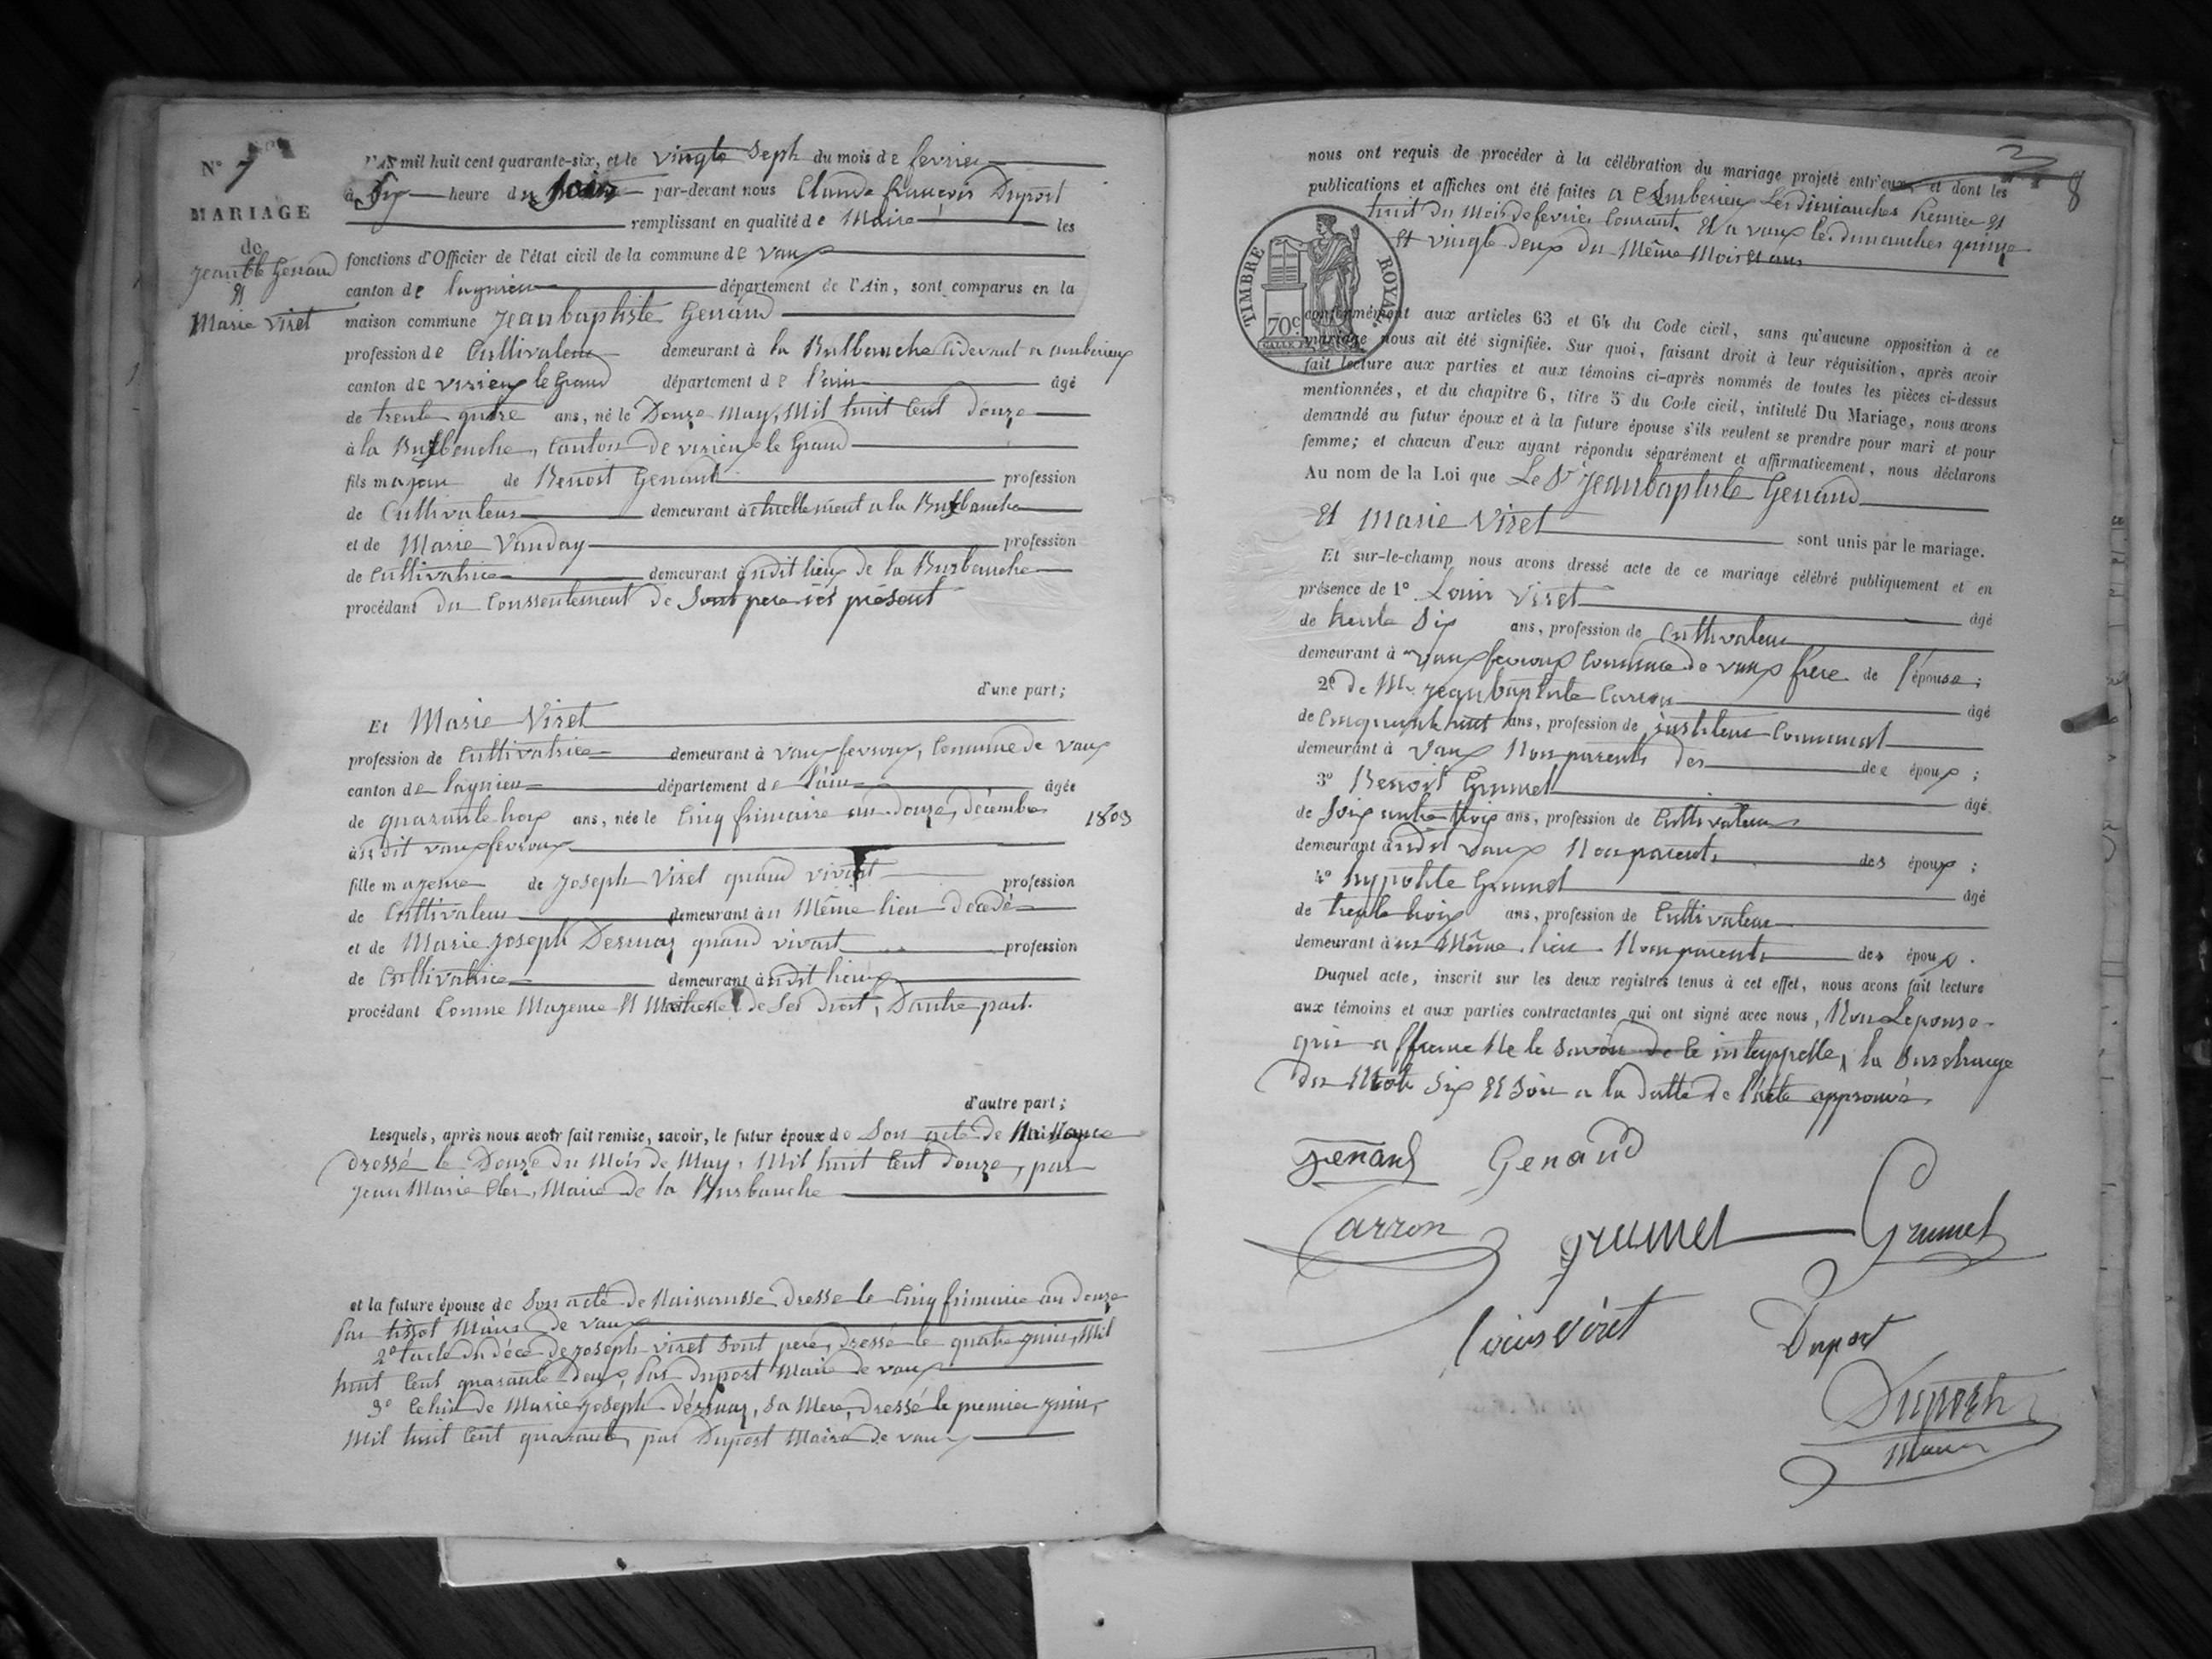 N° 7
MARIAGE
de
Jean Bte Genaud
et
Marie Viret
L'an mil huit cent quarante-six, et le vingte Sept du mois de fevrier
à Six heure du Soir par-devant nous Claude françois Duport
remplissant en qualité de Maire les
fonctions d'Officier de l'état civil de la commune de Vaux
canton de lagnieu département de l'Ain, sont comparus en la
maison commune Jeanbaptiste Genaud
profession de Cultivateur demeurant à la Burbanche cidevant a ambérieux
canton de virieux le Grand département de l'ain âgé
de trente quatre ans, né le Douze May, Mil huit Cent douze
à la Burbanche, Canton de virieux le Grand
fils majeur de Benoit Genaud profession
de Cultivateur demeurant actuellement a la Burbanche
et de Marie Vanday profession
de Cultivatrice demeurant audit lieux de la Burbanche
procédant du Conssentement de Sont pere ici présent
d'une part;
Et Marie Viret
profession de Cultivatrice demeurant à Vaux fevroux, Commune de Vaux
canton de lagnieu département de l'ain âgée
de quarante trois ans, née le Cinq frimaire an douze, décembre 1803
audit vaux fevroux
fille majeure de Joseph Viret quand vivait profession
de Cultivateur demeurant au Même lieu décédé
et de Marie Joseph Desmaz quand vivait profession
de Cultivatrice demeurant audit lieux
procédant Comme Majeure Et Maitresse de Ses droit, D'autre part.
d'autre part;
Lesquels, après nous avoir fait remise, savoir, le futur époux de Son acte de Naissance
dressé le Douze du Mois de May, Mil huit Cent douze, par
Jean Marie Cler, Maire de la Burbanche
et la future épouse de Son acte de Naissansse dresse le Cinq frimaire an douze
Par tissot Maire de Vaux
2° l'acte du décé de Joseph viret Sont pere, dressé le quatre juin, Mil
huit Cent quarante deux, Par Duport Maire de vaux
3° Celui de Marie Joseph désmaz, Sa Mere, dressé le premier juin,
Mil huit Cent quarante, par Duport Maire de vaux
8
nous ont requis de procéder à la célébration du mariage projeté entr'eux, et dont les
publications et affiches ont été faites a Emberieux Les dimanches Premier et
huit du Mois de fevrier Courant. Et a vaux les dimanches quinze
Et vingte deux du Même Mois et an
TIMBRE ROYAL
70c.
conformément aux articles 63 et 64 du Code civil, sans qu'aucune opposition à ce
mariage nous ait été signifiée. Sur quoi, faisant droit à leur réquisition, après avoir
fait lecture aux parties et aux témoins ci-après nommés de toutes les pièces ci-dessus
mentionnées, et du chapitre 6, titre 5 du Code civil, intitulé Du Mariage, nous avons
demandé au futur époux et à la future épouse s'ils veulent se prendre pour mari et pour
femme; et chacun d'eux ayant répondu séparément et affirmativement, nous déclarons
Au nom de la Loi que Le Sr Jeanbaptiste Genaud
Et Marie Viret sont unis par le mariage.
Et sur-le-champ nous avons dressé acte de ce mariage célébré publiquement et en
présence de 1° Louis Viret âgé
de trente Six ans, profession de Cultivateur
demeurant à vaux fevroux Commune de vaux frère de l'épouse;
2° de Mr. Jeanbaptiste Carron âgé
de Cinquante huit ans, profession de instituteur Communal
demeurant à Vaux Non parents des des époux;
3° Benoit Grumet âgé
de Soixante trois ans, profession de Cultivateur
demeurant audit Vaux Non parents des époux;
4° hyppolite Grumet âgé
de trente trois ans, profession de Cultivateur
demeurant au Même lieu Non parents des époux.
Duquel acte, inscrit sur les deux registres tenus à cet effet, nous avons fait lecture
aux témoins et aux parties contractantes qui ont signé avec nous, Non Lepouse
qui a affirme Ne le Savoir de Ce inteppelle, la Surcharge
du Mots Six Et Soir a la datte de l'acte approuvé.
Genaud Genaud
Carron grumet Grumet
louis viret Duport
Duport
Maire